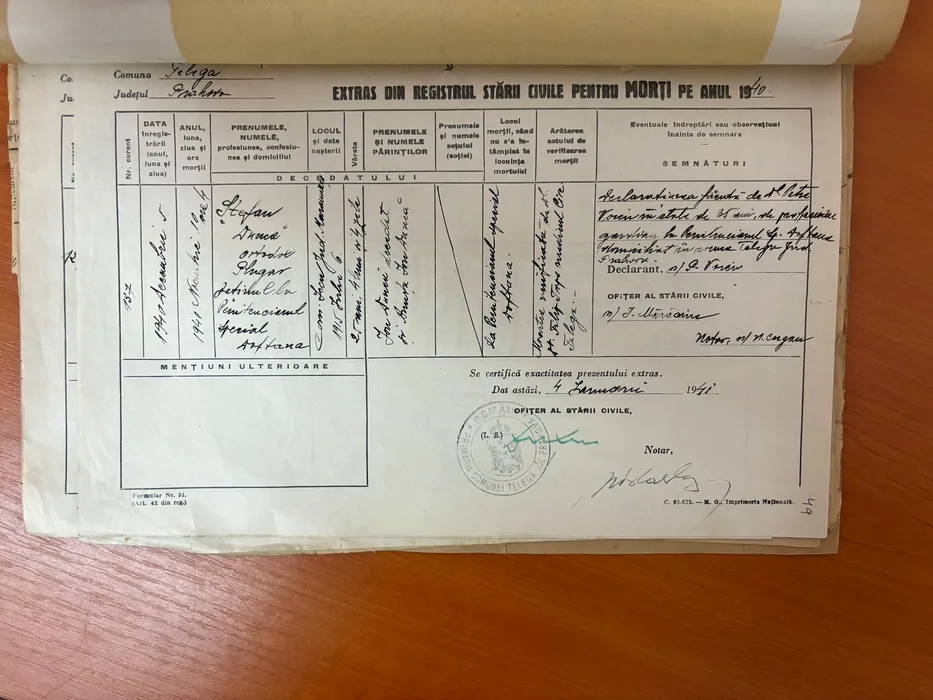 Comuna Telega
Județul Prahova
EXTRAS DIN REGISTRUL STĂRII CIVILE PENTRU MORȚI PE ANUL 1940.
Nr. curent
DATA
înregis-
trării
(anul,
luna și
ziua)
ANUL,
luna,
ziua și
ora
morții
PRENUMELE,
NUMELE,
profesiunea, confesiu-
nea și domiciliul
LOCUL
și data
nașterii
Vârsta
PRENUMELE
ȘI NUMELE
PĂRINȚILOR
DECEDATULUI
Prenumele
și numele
soțului
(soției)
Locul
morții, când
nu s'a în-
tâmplat în
locuința
mortului
Arătarea
actului de
verificarea
morții
Eventuale îndreptări sau observațiuni
înainte de semnare
SEMNĂTURI
157
1940 Decembrie 5
1940 Noembrie 10 ora 4
Ștefan
"Dumea"
ortodox
Plugar
Penitenciarul
special
Doftana
1915 Iulie 6
25 ani, 4 luni și 4 zile
Ion decedat
la Penitenciarul special
Doftana.
Declarațiunea făcută de Dl Petre
Voicu în etate de 35 ani, de profesiune
gardian la Penitenciarul Sp. Doftana
domiciliat în comuna Telega Jud.
Prahova.
Declarant, s/ P. Voicu
OFIȚER AL STĂRII CIVILE,
Notar, s/
MENȚIUNI ULTERIOARE
Se certifică exactitatea prezentului extras.
Dat astăzi, 4 Ianuarie 1941
OFIȚER AL STĂRII CIVILE,
(L. S.)
PRIMĂRIA COMUNEI TELEGA
Notar,
Formular Nr. 31.
(Art. 42 din reg.)
C. 65.625. — M. O., Imprimeria Națională.
49